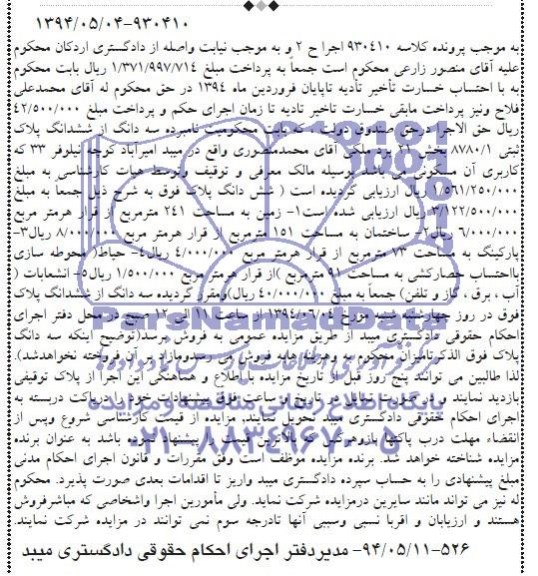 ۹۳۰۴۱۰-۱۳۹۴/۰۵/۰۴
به موجب پرونده کلاسه ۹۳۰۴۱۰ اجرا ح ۲ و به موجب نیابت واصله از دادگستری اردکان محکوم
علیه آقای منصور زارعی محکوم است جمعاً به پرداخت مبلغ ۱/۳۷۱/۹۹۷/۷۱۴ ریال بابت محکوم
به با احتساب خسارت تأخیر تأدیه تاپایان فروردین ماه ۱۳۹۴ در حق محکوم له آقای محمدعلی
فلاح ونیز پرداخت مابقی خسارت تاخیر تادیه تا زمان اجرای حکم و پرداخت مبلغ ۴۲/۵۰۰/۰۰۰
ریال حق الاجرا درحق صندوق دولت که بابت محکومیت نامبرده سه دانگ از ششدانگ پلاک
ثبتی ۸۷۸۰/۱ بخش ۲۱ یزد ملکی آقای محمدمنصوری واقع در میبد امیرآباد کوچه نیلوفر ۳۳ که
کاربری آن مسکونی می باشد بوسیله مالک معرفی و توقیف وتوسط هیات کارشناسی به مبلغ
۱/۵۶۱/۲۵۰/۰۰۰ ریال ارزیابی گردیده است ( شش دانگ پلاک فوق به شرح ذیل جمعاً به مبلغ
۳/۱۲۲/۵۰۰/۰۰۰ ریال ارزیابی شده است۱- زمین به مساحت ۲۴۱ مترمربع از قرار هرمتر مربع
۶/۰۰۰/۰۰۰ ریال۲- ساختمان به مساحت ۱۵۱ مترمربع از قرار هرمتر مربع ۸/۰۰۰/۰۰۰ ریال۳-
پارکینگ به مساحت ۷۳ مترمربع از قرار هرمتر مربع ۴/۰۰۰/۰۰۰ ریال۴- حیاط( محوطه سازی
بااحتساب حصارکشی به مساحت ۹۱ مترمربع )از قرار هرمتر مربع ۱/۵۰۰/۰۰۰ ریال۵- انشعابات (
آب ، برق ، گاز و تلفن) جمعاً به مبلغ ۴۰/۰۰۰/۰۰۰ ریال)ومقرر گردیده سه دانگ از ششدانگ پلاک
فوق در روز چهارشنبه مورخ ۱۳۹۴/۰۶/۰۴ از ساعت ۱۱ الی ۱۲ صبح در محل دفتر اجرای
احکام حقوقی دادگستری میبد از طریق مزایده عمومی به فروش برسد(توضیح اینکه سه دانگ
پلاک فوق الذکر تامیزان محکوم به وهزینه هابه فروش می رسدومازاد بر آن فروخته نخواهدشد).
لذا طالبین می توانند پنج روز قبل از تاریخ مزایده با اطلاع و هماهنگی این اجرا از پلاک توقیفی
بازدید نمایند و در صورت تمایل در تاریخ و ساعت فوق پیشنهادات خود را درپاکت دربسته به
اجرای احکام حقوقی دادگستری میبد تحویل نمایند. مزایده از قیمت کارشناسی شروع وپس از
انقضاء مهلت درب پاکتها بازوهرکس که بالاترین قیمت را پیشنهاد نموده باشد به عنوان برنده
مزایده شناخته خواهد شد. برنده مزایده موظف است وفق مقررات و قانون اجرای احکام مدنی
مبلغ پیشنهادی را به حساب سپرده دادگستری میبد واریز تا اقدامات بعدی صورت پذیرد. محکوم
له نیز می تواند مانند سایرین درمزایده شرکت نماید. ولی مأمورین اجرا واشخاصی که مباشرفروش
هستند و ارزیابان و اقربا نسبی وسببی آنها تادرجه سوم نمی توانند در مزایده شرکت نمایند.
۹۴/۰۵/۱۱-۵۲۶- مدیردفتر اجرای احکام حقوقی دادگستری میبد
ParsNamadData
پایگاه اطلاع رسانی مناقصه و مزایده
۰۲۱-۸۸۳۴۹۶۷۰-۵